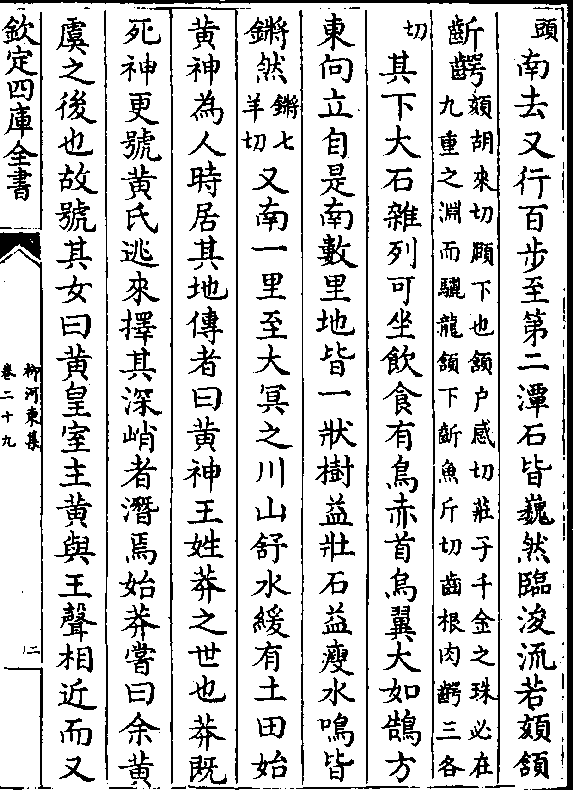 頭
南去又行百步至第二潭石皆巍然臨浚流若頦頷
齗齶
頦胡來切頤下也頷户感切莊子千金之珠必在
九重之淵而驪龍頷下齗魚斤切齒根肉齶三各
切
其下大石雜列可坐飲食有鳥赤首烏翼大如鵠方
東向立自是南數里地皆一狀樹益壯石益瘦水鳴皆
鏘然
鏘七
羊切
又南一里至大冥之川山舒水緩有土田始
黄神為人時居其地傳者曰黄神王姓莽之世也莽既
死神更號黄氏逃來擇其深峭者潛焉始莽嘗曰余黄
虞之後也故號其女曰黄皇室主黄與王聲相近而又
欽定四庫全書
柳河東集
卷二十九
二